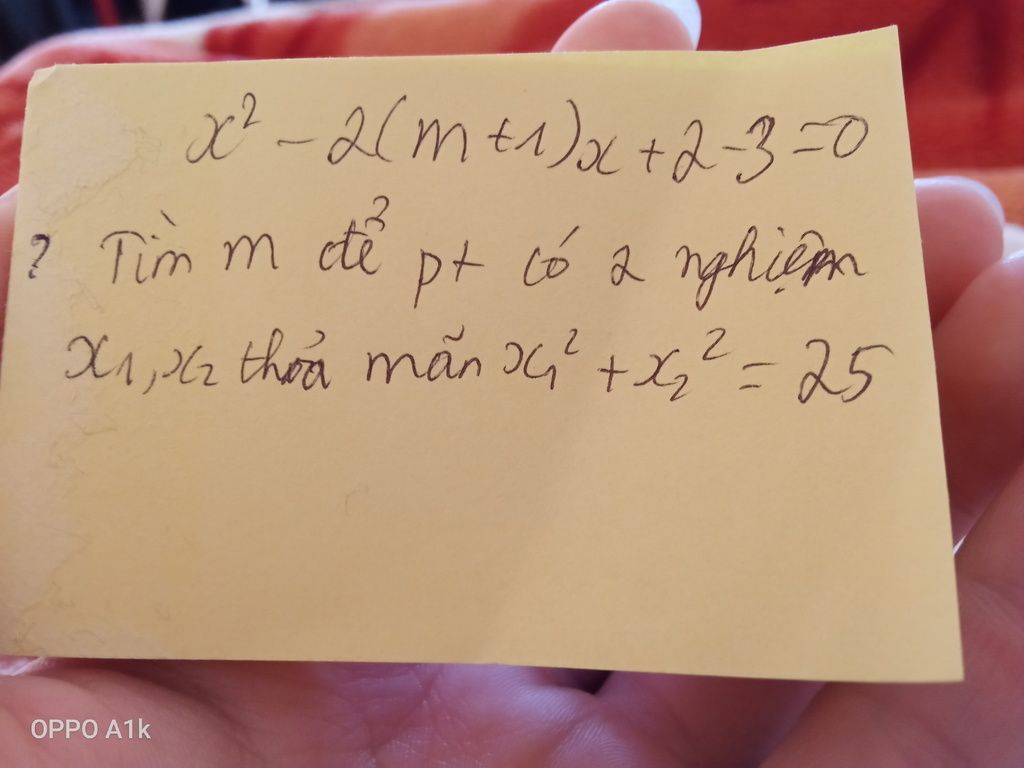 x² - 2(m+1)x + 2 - 3 = 0
? Tìm m để pt có 2 nghiệm
x1, x2 thỏa mãn x₁² + x₂² = 25
OPPO A1k